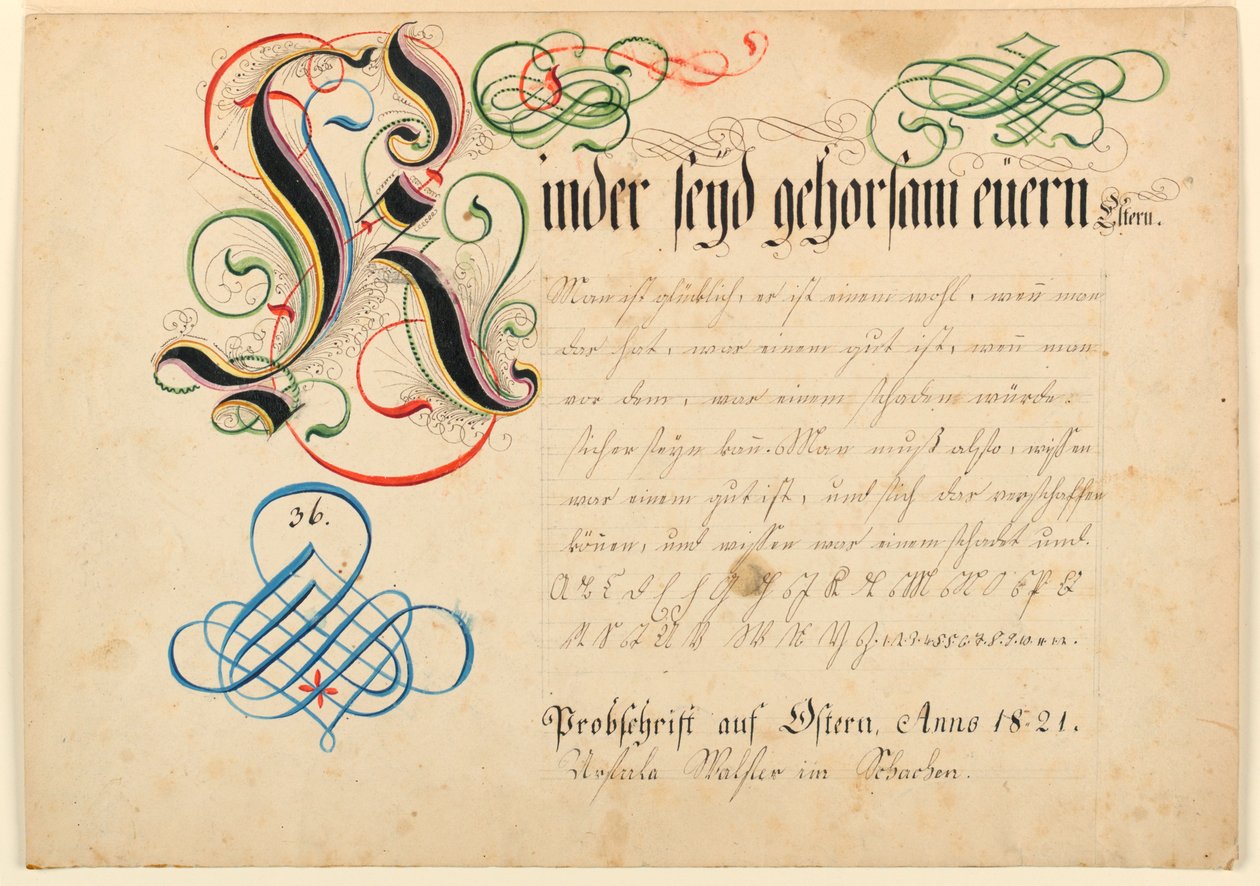 Kinder seÿd gehorsam eüern Eltern.
Man ist glücklich, es ist einem wohl, weñ man
das hat, was einem gut ist, weñ man
vor dem, was einem schaden würde.
sicher seÿn kañ. Man muß also, wissen
was einem gut ist, und sich das verschaffen
köñen, und wissen was einem schadet und.
A B C D E F G H J K L M N O P Q
R S T U V W X Y Z. 1. 2. 3. 4. 5. 6. 7. 8. 9. 10. 11. 12.
36.
Probschrift auf Ostern, Anno 18-21.
Ursula Walser im Schachen.